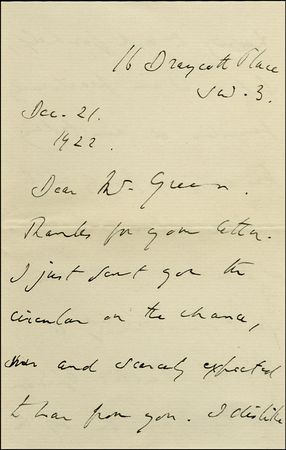 16 Draycott Place
SW. 3.
Dec. 21.
1922.
Dear Mr Green.
Thanks for your letter.
I just sent you the
circular on the chance,
and scarcely expected
to hear from you. I dislike